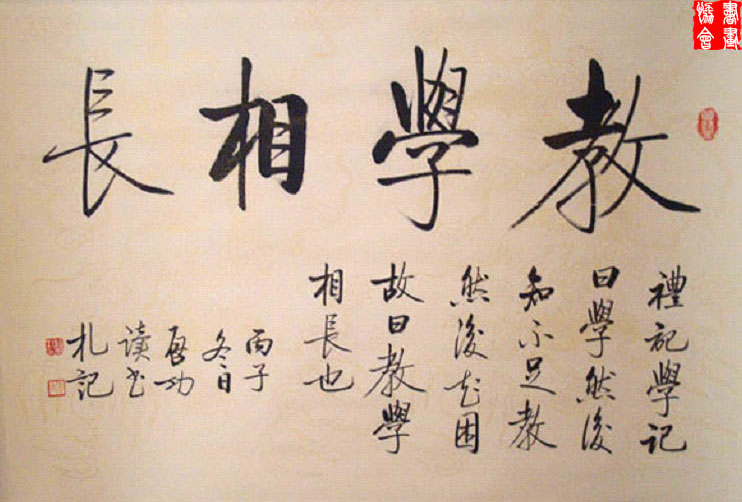 書畫
協會
教學相長
禮記學記
曰學然後
知不足教
然後知困
故曰教學
相長也
丙子
冬日
啟功
讀書
札記